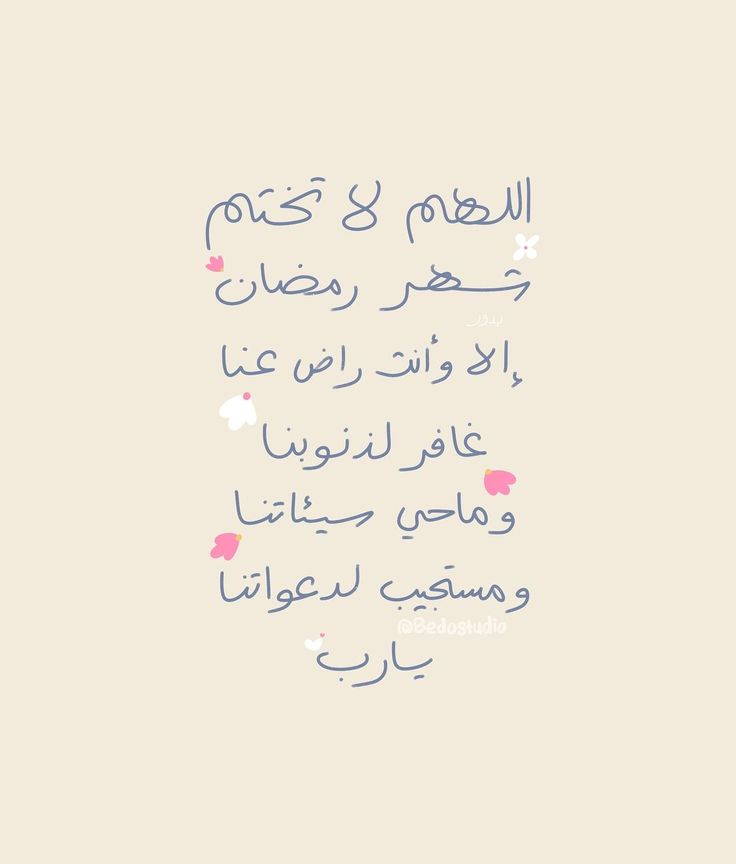 اللهم لا تختم
شهر رمضان
بدور
إلا وأنت راض عنا
غافر لذنوبنا
وماحي سيئاتنا
ومستجيب لدعواتنا
@Bedostudio
يارب